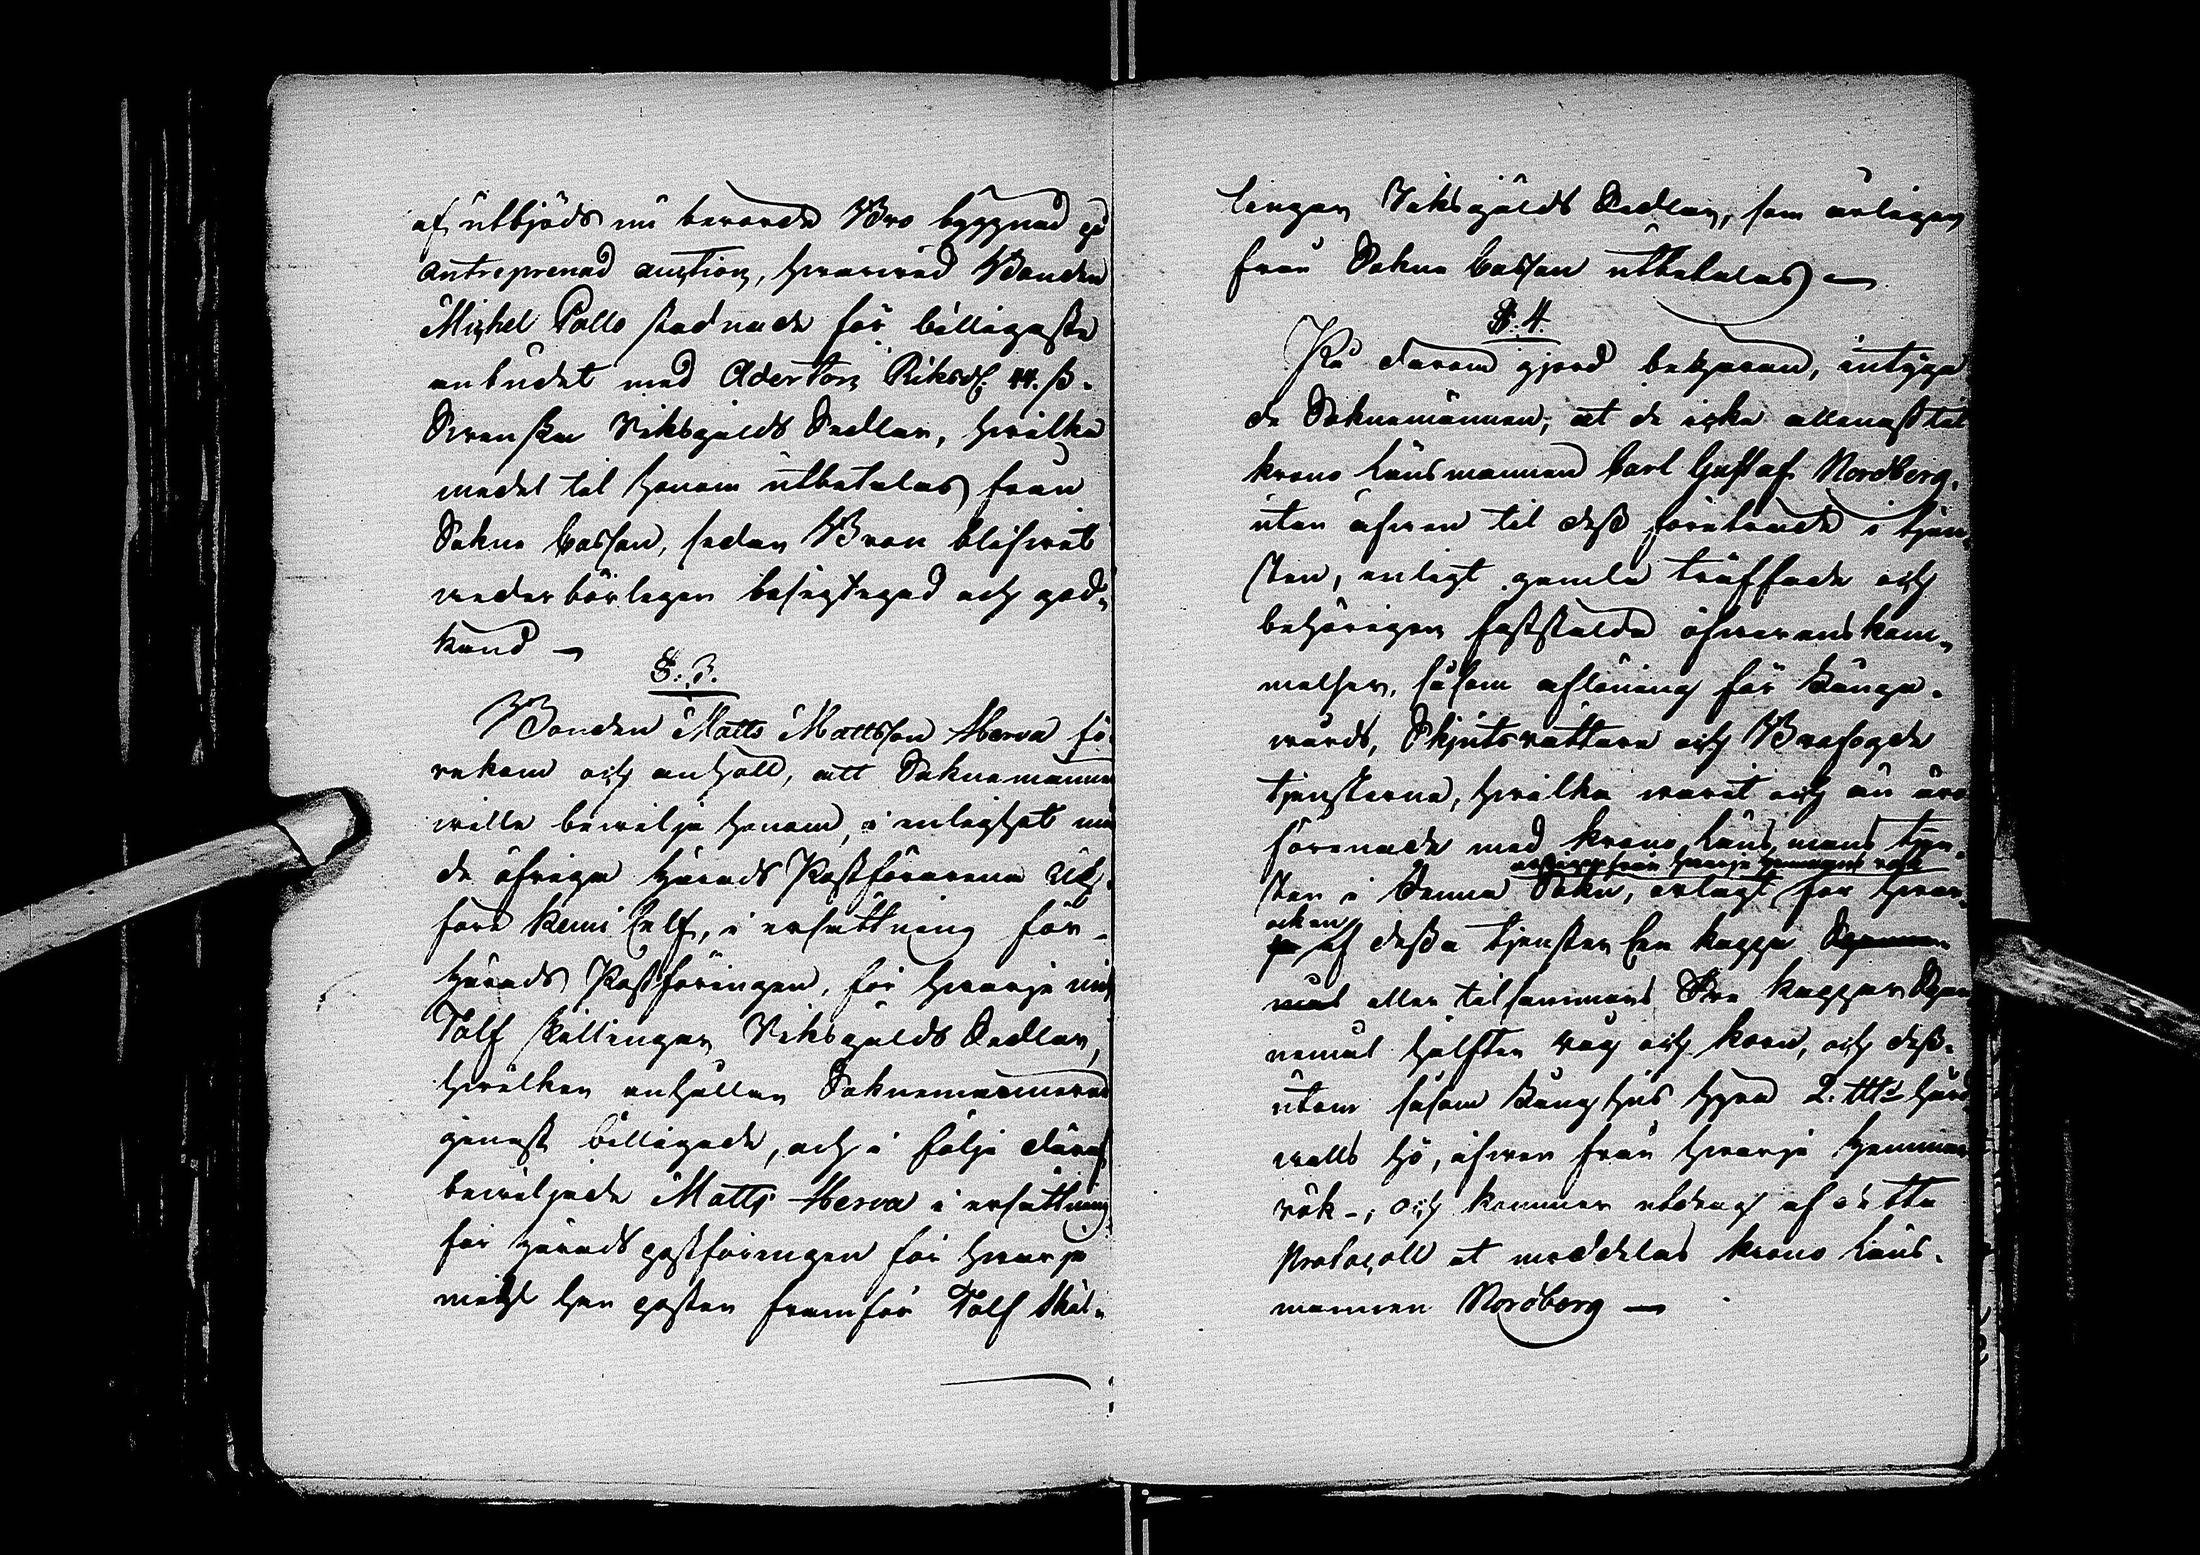 af, utbjöds nu berörde Bro byggnad på
Antreprenad auction, hwarwid Bonden
Michel Pallo stadnade för billigaste
anbudet med Aderton Riksd. 44. ß.
Swenska Riksgälds Sedlar, hwilka
medel til honom utbetalas från
Sokne Cassan, sedan Bron blifwit
wederbörligen besigtigad och god-
känd —
§. 3.
Bonden Matts Mattsson Herva fö-
rekom och anhöll, att Soknemännen
wille bewilja honom, i enlighet med
de öfriga härads Postförarena Ut-
före Kemi Elf, i ersättning för
härads Postföringen, för hwarje mil
Tolf skillingar Riksgälds Sedlar,
hwilken anhållan Soknemännerne
genast billigade, och i följe däraf
bewiljade Matts Herva i ersättning
för härads postföringen för hwarje
mihl han posten framför Tolf Skil-
lingar Riksgälds Sedlar, som årligen
från Sokne Cassan utbetalas —
§. 4.
På derom gjord begäran, intyga-
de Soknemännen, at de icke allenast til
krono Länsmannen Carl Gustaf Nordberg,
utan äfwen til dess företrädde i tjen-
sten, enligt gamla träffade och
behörigen faststälda öfwerenskom-
melser, såsom aflöning för Fånge-
wårds, Skjutsrättare och Brofogde
tjensterne, hwilka warit och än äro
förenade med krono Läns mans tjen-
från hwarje hemmans rök
sten i denna Sokn, erlagt för hwar-
och en
af dessa tjenster En kappa Spanne-
mål eller tilsammans Tre kappar Span-
nemål hälften råg och korn, och dess-
utom såsom Fånghus hyra 2. ttt hård-
walls hö, äfwen från hwarje hemmans
rök -, och kommer utdrag af detta
Protocoll at meddelas krono Läns-
mannen Nordberg —